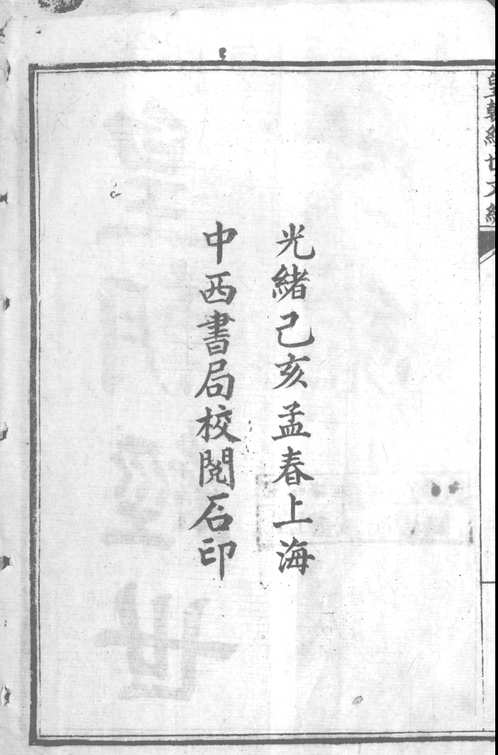 光緒己亥孟春上海
中西書局校閱石印